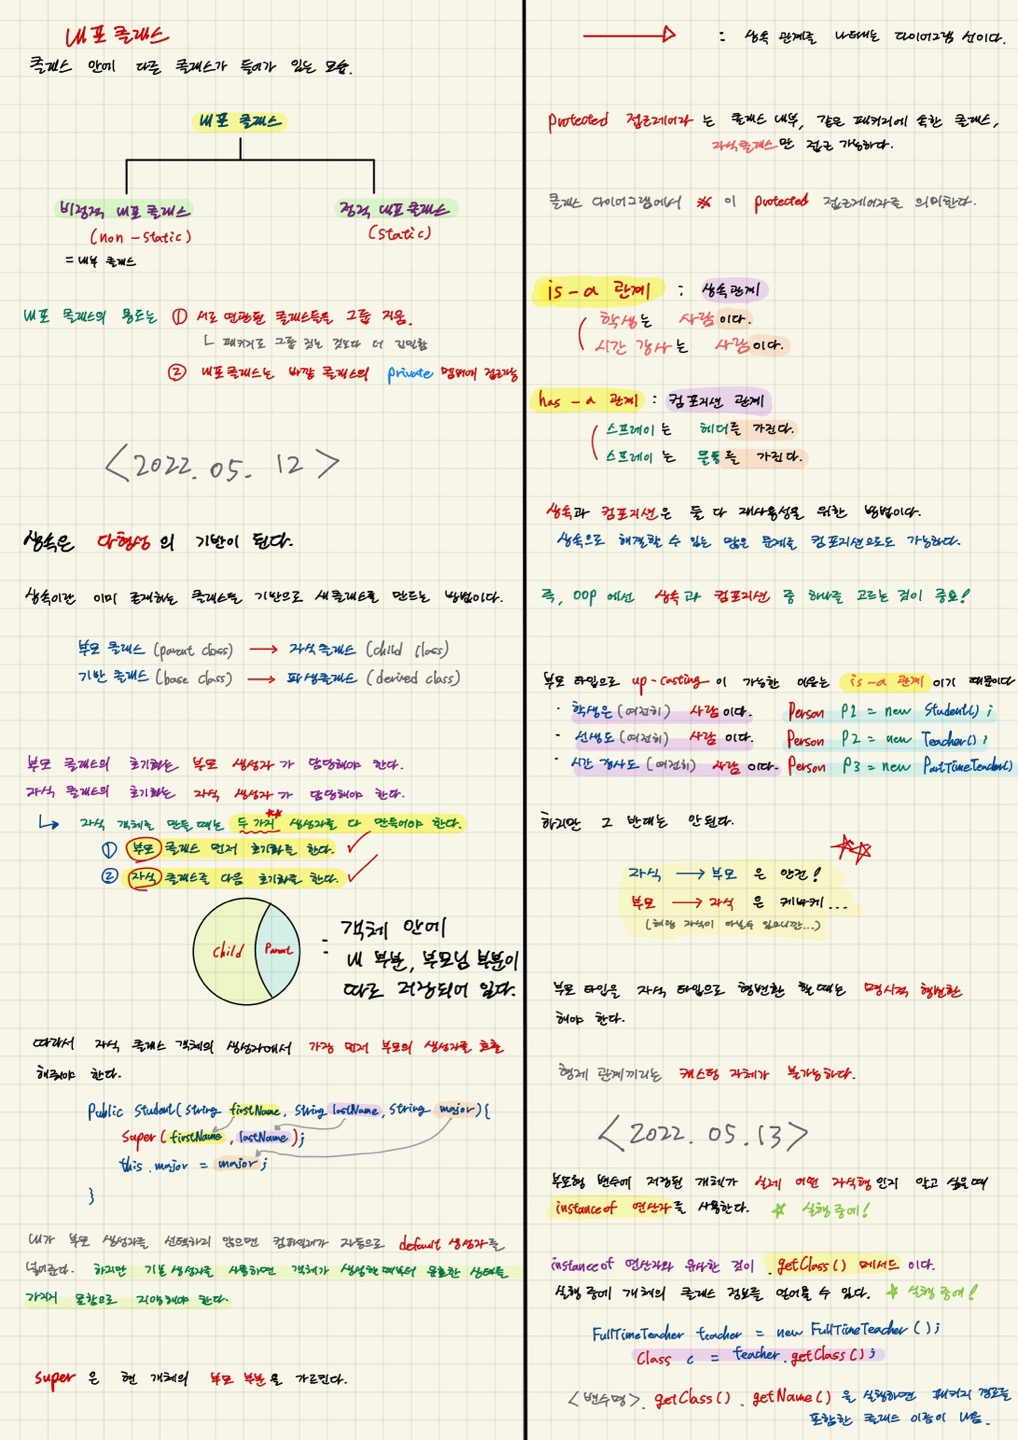 내포 클래스
클래스 안에 다른 클래스가 들어가 있는 모습.
내포 클래스
비정적 내포 클래스
(non - static)
= 내부 클래스
정적 내포 클래스
(static)
내포 클래스의 용도는 ① 서로 연관된 클래스들을 그룹 지음.
└ 패키지로 그룹 짓는 것보다 더 긴밀함
② 내포클래스는 바깥 클래스의 private 멤버에 접근가능
<2022. 05. 12>
상속은 다형성의 기반이 된다.
상속이란 이미 존재하는 클래스를 기반으로 새클래스를 만드는 방법이다.
부모 클래스 (parent class) → 자식클래스 (child class)
기반 클래스 (base class) → 파생클래스 (derived class)
부모 클래스의 초기화는 부모 생성자가 담당해야 한다.
자식 클래스의 초기화는 자식 생성자가 담당해야 한다.
↳ 자식 객체를 만들 때는 두 가지 생성자를 다 만들어야 한다.
① 부모 클래스 먼저 초기화를 한다.
② 자식 클래스를 다음 초기화를 한다.
Child Parent : 객체 안에
내 부분, 부모님 부분이
따로 저장되어 있다.
따라서 자식 클래스 객체의 생성자에서 가장 먼저 부모의 생성자를 호출
해줘야 한다.
Public Student(String firstName, String lastName, String major){
super(firstName, lastName);
this.major = major;
}
내가 부모 생성자를 선택하지 않으면 컴파일러가 자동으로 default 생성자를
넣어준다. 하지만 기본 생성자를 사용하면 객체가 생성한 때부터 유효한 상태를
가지지 못함으로 지양해야 한다.
super 은 현 객체의 부모 부분을 가르킨다.
→ : 상속 관계를 나타내는 다이어그램 선이다.
protected 접근제어자 는 클래스 내부, 같은 패키지에 속한 클래스,
자식클래스만 접근 가능하다.
클래스 다이어그램에서 이 protected 접근제어자를 의미한다.
is - a 관계 : 상속관계
학생는 사람이다.
시간 강사는 사람이다.
has - a 관계 : 컴포지션 관계
스프레이는 헤더를 가진다.
스프레이는 물통을 가진다.
상속과 컴포지션은 둘 다 재사용성을 위한 방법이다.
상속으로 해결할 수 있는 많은 문제를 컴포지션으로도 가능하다.
즉, OOP 에선 상속과 컴포지션 중 하나를 고르는 것이 중요!
부모 타입으로 up-casting 이 가능한 이유는 is - a 관계이기 때문이다
· 학생은 (여전히) 사람이다. Person P1 = new Student();
· 선생도 (여전히) 사람이다. Person P2 = new Teacher();
· 시간 강사도 (여전히) 사람이다. Person P3 = new PartTimeTeacher()
하지만 그 반대는 안된다.
자식 → 부모 은 안전!
부모 → 자식 은 케바케...
(해당 자식이 아닐수 있으니깐...)
부모 타입을 자식 타입으로 형변환 할 때는 명시적 형변환
해야 한다.
형제 관계끼리는 캐스팅 자체가 불가능하다.
<2022. 05. 13>
부모형 변수에 저장된 개체가 실제 어떤 자식형인지 알고 싶을 때
instance of 연산자를 사용한다. ☆ 실행 중에!
instance of 연산자와 유사한 것이 getClass() 메서드 이다.
실행 중에 개체의 클래스 정보를 얻어올 수 있다. ☆ 실행 중에!
FullTimeTeacher teacher = new FullTimeTeacher();
Class c = teacher.getClass();
<변수명>.getClass().getName() 을 실행하면 패키지 경로를
포함한 클래스 이름이 나옴.